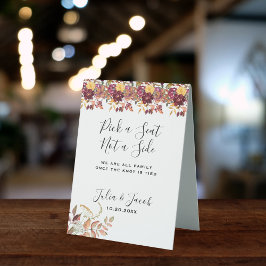 Pick a Seat
Not a Side
WE ARE ALL FAMILY
ONCE THE KNOT IS TIED
Julia & Jacob
10.20.20XX